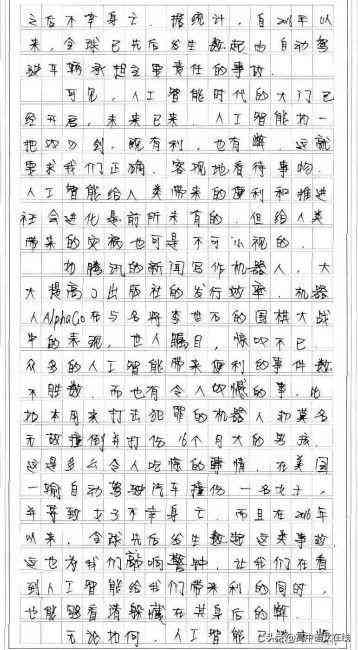 之后不幸身亡。据统计，自2016年以
来，全球已先后发生数起由自动驾
驶车辆承担主要责任的事故。
可见，人工智能时代的大门已
经开启，未来已来。人工智能把一
把切刀到，既有利，也有弊，这就
要求我们正确、客观地看待事物。
人工智能给人类带来的便利和推进
社会进化是前所未有的，但给人类
带来的灾祸也可是不可小视的。
如腾讯的新闻写作机器人，大
大提高了出版社的发行效率，机器
人AlphaGo在与名将李世石的围棋大战
中的表现，世人瞩目，惊叹不已
众多的人工智能带来便利的事件数
不胜数，而也有令人叹憾的事，比
如本用来打击犯罪的机器人却莫名
无故撞倒并打伤16个月大的男孩，
这是多么令人吃惊的事情，在美国
一辆自动驾驶汽车撞伤一名女子，
并导致女子不幸身亡，而且在2016年
以来，全球先后发生数起这类事故
这也为我们敲响警钟，让我们在看
到人工智能给我们带来利的同时，
也能够看清躲藏在其身后的弊。
无论如何，人工智能已